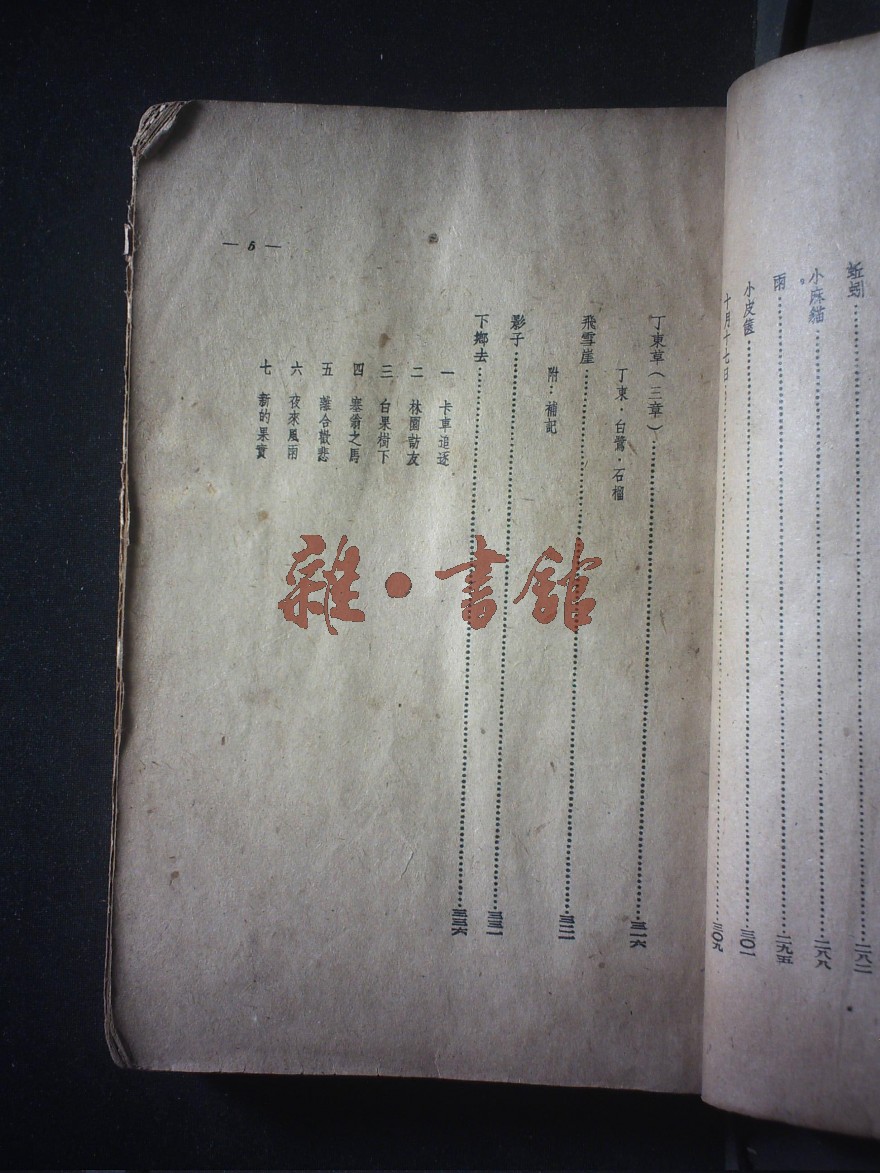 蚯蚓……二八二
小麻貓……二八八
雨……二九五
小皮篋……三〇一
十月十七日……三〇九
丁東草(三章)……三一六
丁東・白鷺・石榴
飛雪崖……
附:補記
影子……
下鄉去……三三六
一 卡車追逐
二 林園訪友
三 白果樹下
四 塞翁之馬
五 離合歡悲
六 夜來風雨
七 新的果實
— 5 —
雜・書舘